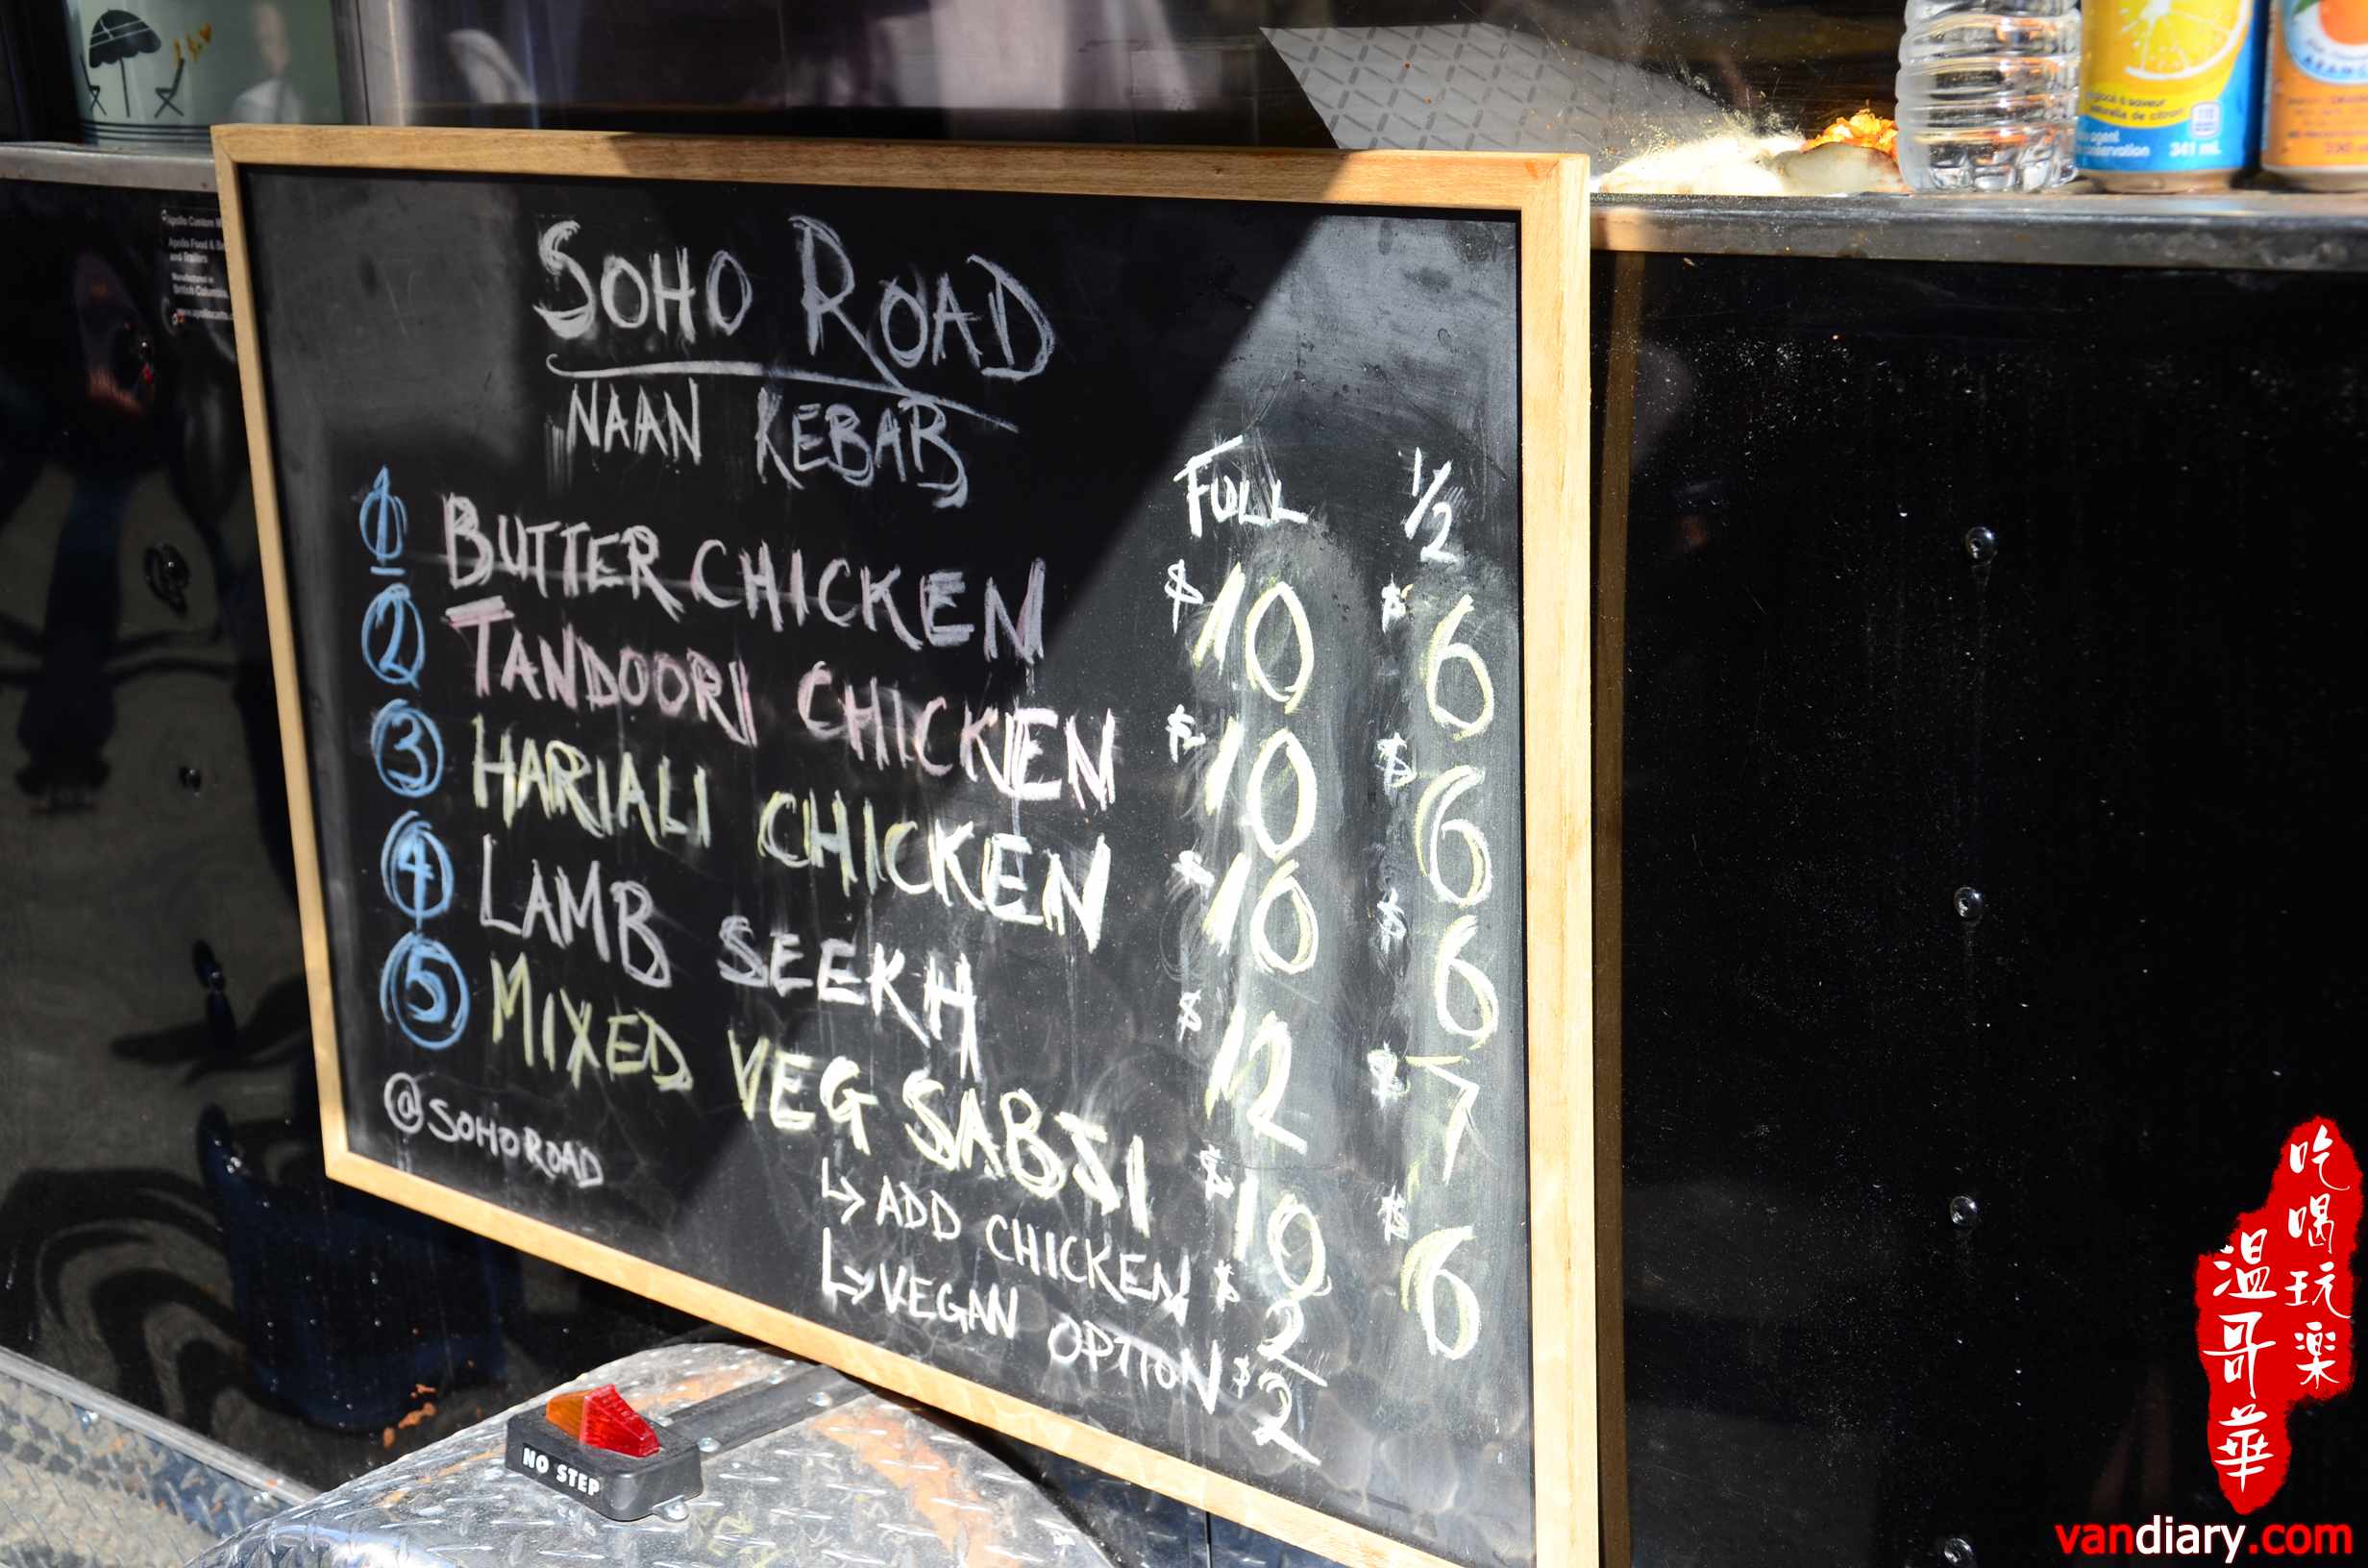 SOHO ROAD
NAAN KEBAB
FULL 1/2
1 BUTTER CHICKEN $10 $6
2 TANDOORI CHICKEN $10 $6
3 HARIALI CHICKEN $10 $6
4 LAMB SEEKH $12 $7
5 MIXED VEG SABJI $10 $6
↳ ADD CHICKEN $2
↳ VEGAN OPTION $2
@SOHOROAD
NO STEP
341 mL
吃喝玩楽
温哥華
vandiary.com